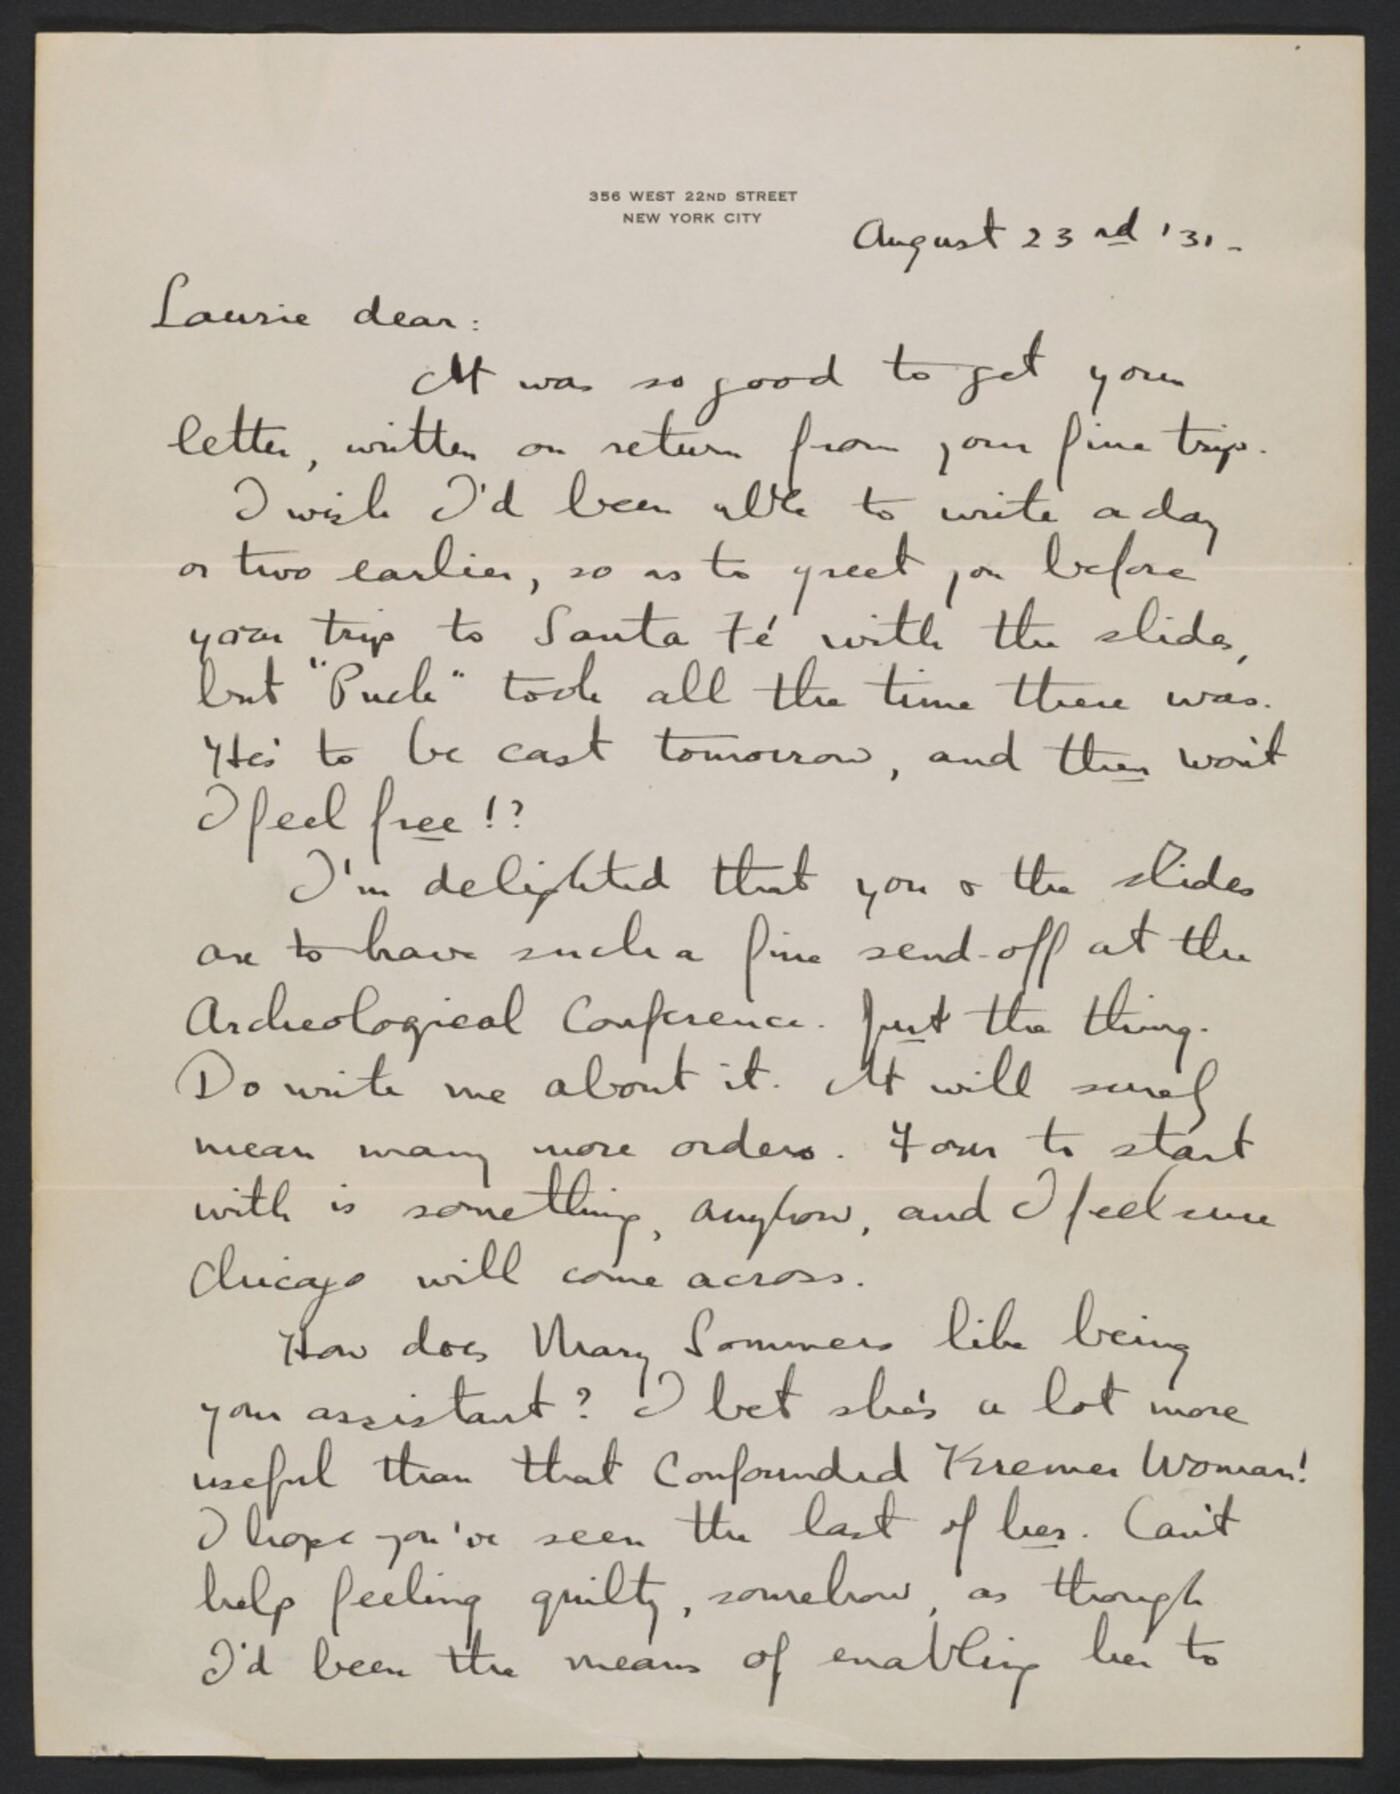 356 WEST 22ND STREET
NEW YORK CITY
August 23rd '31-
Laurie dear:
It was so good to get your
letter, written on return from your fine trip.
I wish I'd been able to write a day
or two earlier, so as to greet you before
your trip to Santa Fé with the slides,
but "Puck" took all the time there was.
He's to be cast tomorrow, and then won't
I feel free!?
I'm delighted that you & the slides
are to have such a fine send-off at the
Archeological Conference. Just the thing.
Do write me about it. It will surely
mean many more orders. Four to start
with is something, anyhow, and I feel sure
Chicago will come across.
How does Mary Sommers like being
your assistant? I bet she's a lot more
useful than that Confounded Kremer Woman!
I hope you've seen the last of her. Can't
help feeling guilty, somehow, as though
I'd been the means of enabling her to